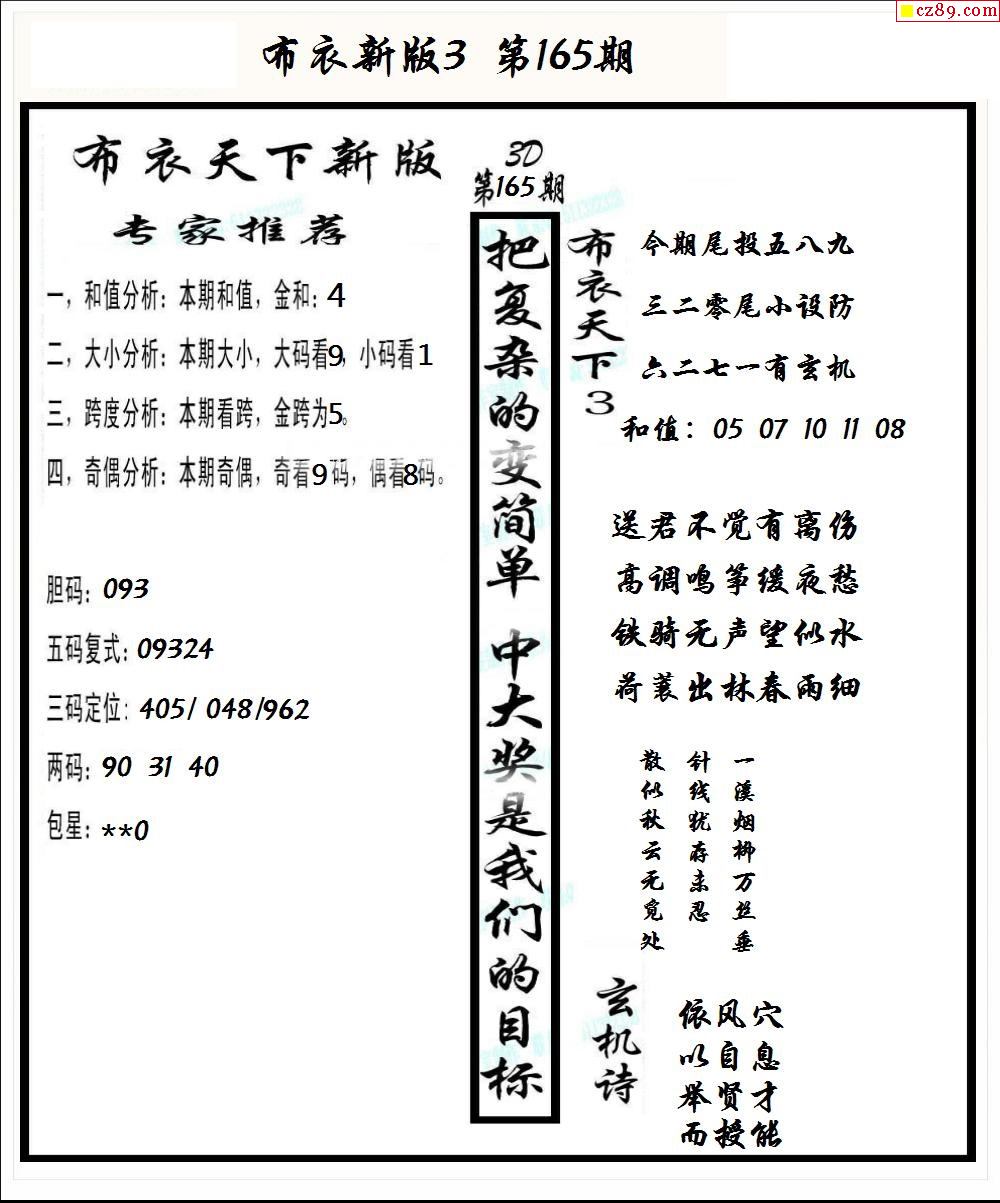 cz89.com
布衣新版3 第165期
布衣天下新版
专家推荐
一，和值分析：本期和值，金和：4
二，大小分析：本期大小，大码看9，小码看1
三，跨度分析：本期看跨，金跨为5。
四，奇偶分析：本期奇偶，奇看9码，偶看8码。
胆码：093
五码复式：09324
三码定位：405/ 048/962
两码：90 31 40
包星：**0
3D
第165期
把复杂的变简单 中大奖是我们的目标
布衣天下3
今期尾投五八九
三二零尾小设防
六二七一有玄机
和值：05 07 10 11 08
送君不觉有离伤
高调鸣筝缓夜愁
铁骑无声望似水
荷蓑出林春雨细
一溪烟柳万丝垂
针线犹存未忍
散似秋云无觅处
玄机诗
依风穴
以自息
举贤才
而授能